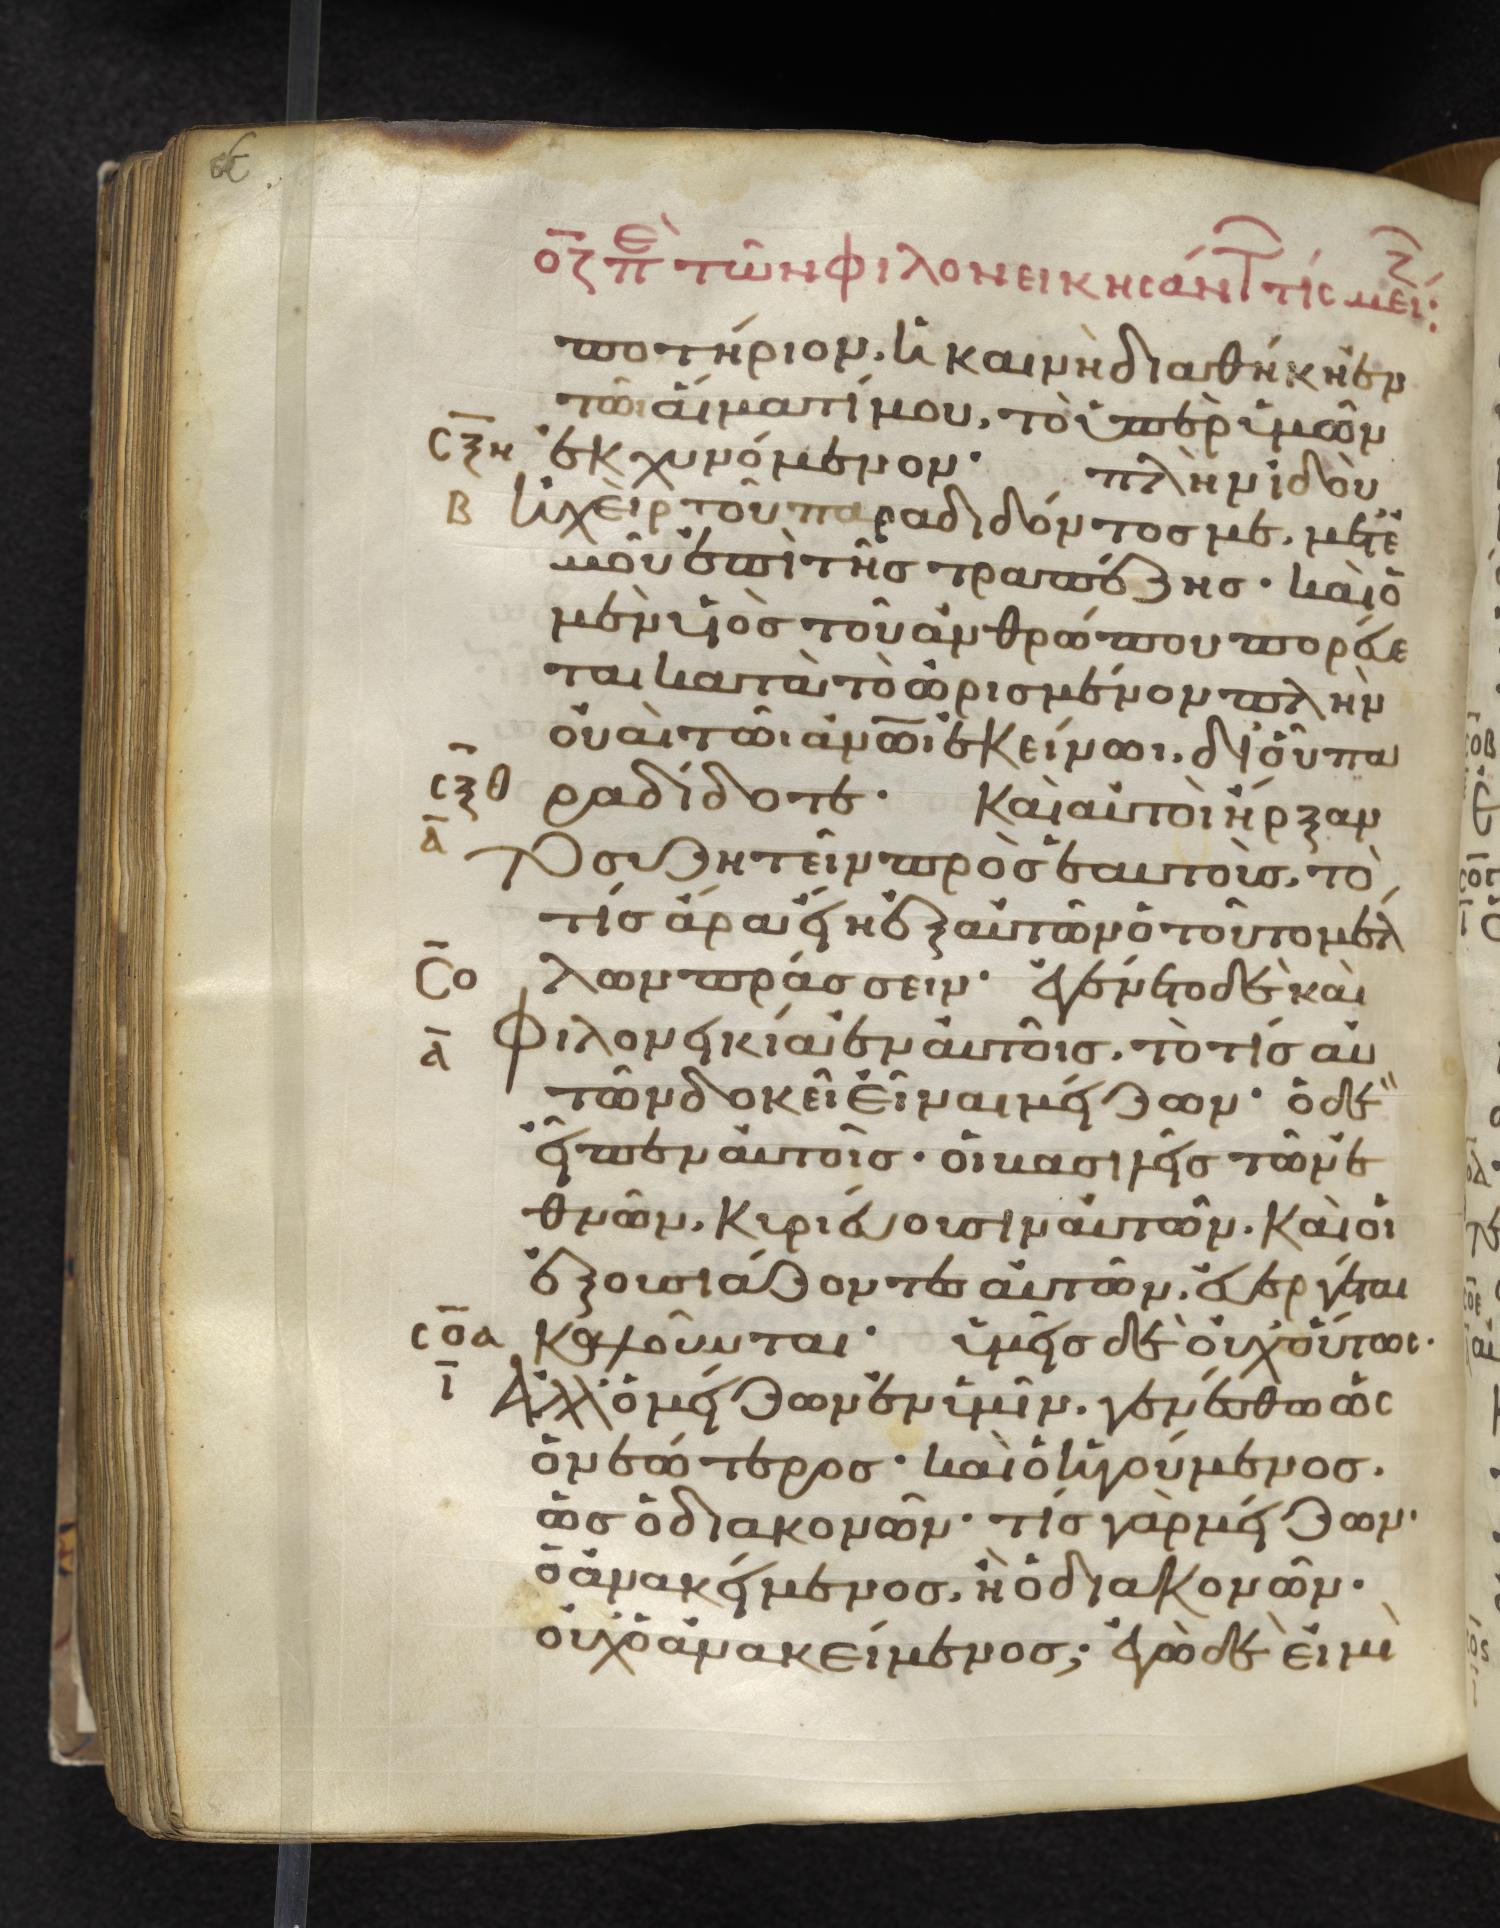 οζ περὶ τῶν φιλονεικησάντων τίς μείζων:
ποτήριον, ἡ καινὴ διαθήκη ἐν
τῶι αἵματί μου, τὸ ὑπὲρ ὑμῶν
σξη ἐκχυνόμενον· πλὴν ἰδοὺ
β ἡ χεὶρ τοῦ παραδιδόντος με, μετ' ἐ
μοῦ ἐπὶ τῆς τραπέζης· καὶ ὁ
μὲν υἱὸς τοῦ ἀνθρώπου πορεύε
ται κατὰ τὸ ὡρισμένον πλὴν
οὐαὶ τῶι ἀνωι ἐκείνωι, δι' οὗ πα
σξθ ραδίδοται· Καὶ αὐτοὶ ἤρξαν
α το συζητεῖν πρὸς ἑαυτοὺς, τὸ
τίς ἄρα εἴη ἐξ αὐτῶν ὁ τοῦτο μέλ
σο λων πράσσειν· ἐγένετο δὲ καὶ
α φιλονεικία ἐν αὐτοῖς, τὸ τίς αὐ
τῶν δοκεῖ εἶναι μείζων· ὁ δὲ
εἶπεν αὐτοῖς· οἱ βασιλεῖς τῶν ἐ
θνῶν, κυριεύουσιν αὐτῶν, καὶ οἱ
ἐξουσιάζοντες αὐτῶν, εὐεργέται
σοα καλοῦνται· ὑμεῖς δὲ οὐχ οὕτως·
ι Ἀλλ' ὁ μείζων ἐν ὑμῖν, γενέσθω ὡς
ὁ νεώτερος· καὶ ὁ ἡγούμενος,
ὡς ὁ διακονῶν· τίς γὰρ μείζων·
ὁ ἀνακείμενος, ἢ ὁ διακονῶν·
οὐχ ὁ ἀνακείμενος; ἐγὼ δὲ εἰμὶ